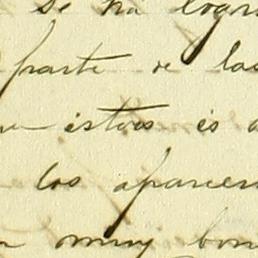 se ha logra
parte de las
estos es a
los aparecen
muy bon